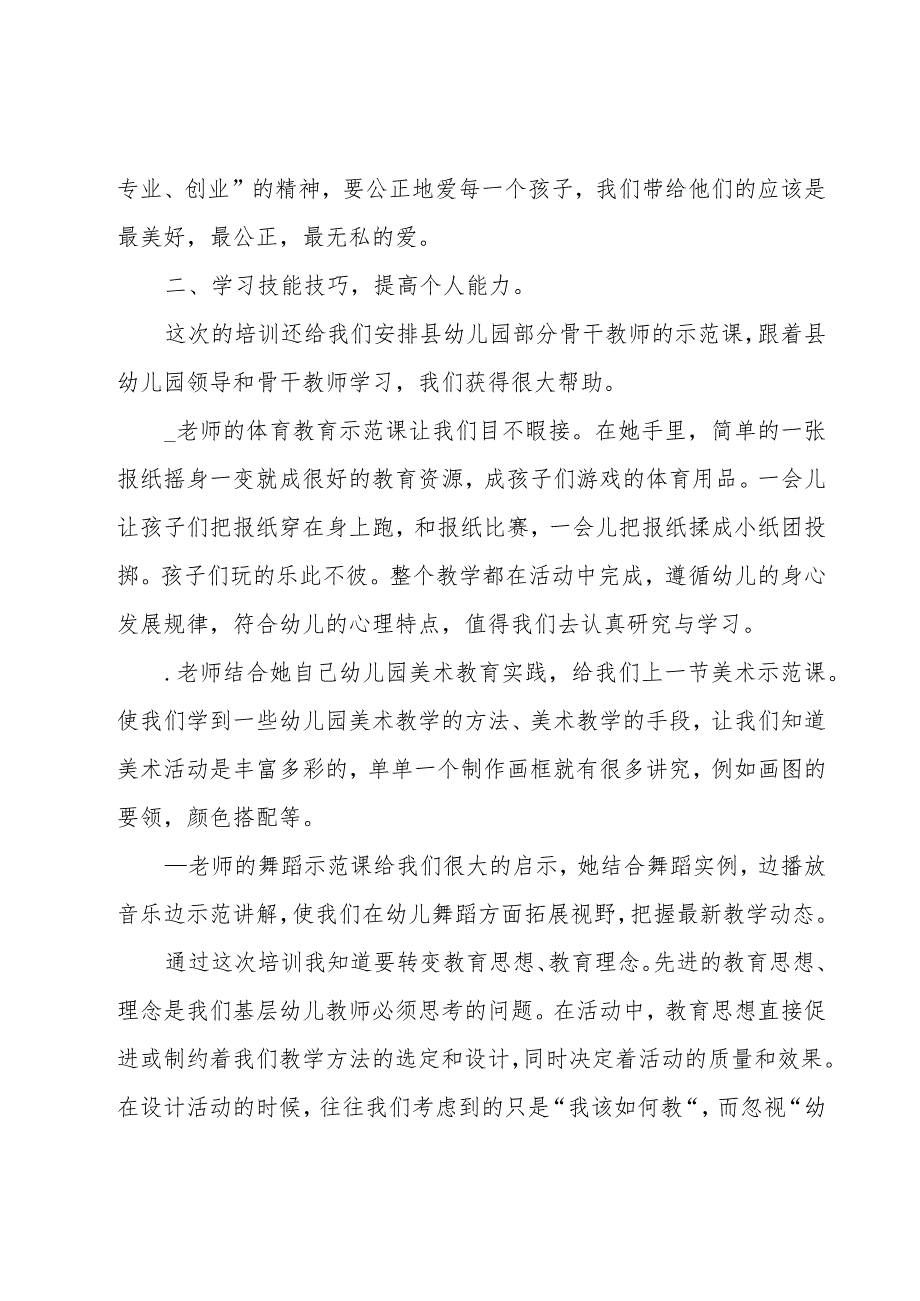 专业、创业”的精神，要公正地爱每一个孩子，我们带给他们的应该是
最美好，最公正，最无私的爱。
二、学习技能技巧，提高个人能力。
这次的培训还给我们安排县幼儿园部分骨干教师的示范课，跟着县
幼儿园领导和骨干教师学习，我们获得很大帮助。
_老师的体育教育示范课让我们目不暇接。在她手里，简单的一张
报纸摇身一变就成很好的教育资源，成孩子们游戏的体育用品。一会儿
让孩子们把报纸穿在身上跑，和报纸比赛，一会儿把报纸揉成小纸团投
掷。孩子们玩的乐此不彼。整个教学都在活动中完成，遵循幼儿的身心
发展规律，符合幼儿的心理特点，值得我们去认真研究与学习。
.老师结合她自己幼儿园美术教育实践，给我们上一节美术示范课。
使我们学到一些幼儿园美术教学的方法、美术教学的手段，让我们知道
美术活动是丰富多彩的，单单一个制作画框就有很多讲究，例如画图的
要领，颜色搭配等。
—老师的舞蹈示范课给我们很大的启示，她结合舞蹈实例，边播放
音乐边示范讲解，使我们在幼儿舞蹈方面拓展视野，把握最新教学动态。
通过这次培训我知道要转变教育思想、教育理念。先进的教育思想、
理念是我们基层幼儿教师必须思考的问题。在活动中，教育思想直接促
进或制约着我们教学方法的选定和设计，同时决定着活动的质量和效果。
在设计活动的时候，往往我们考虑到的只是“我该如何教“，而忽视“幼